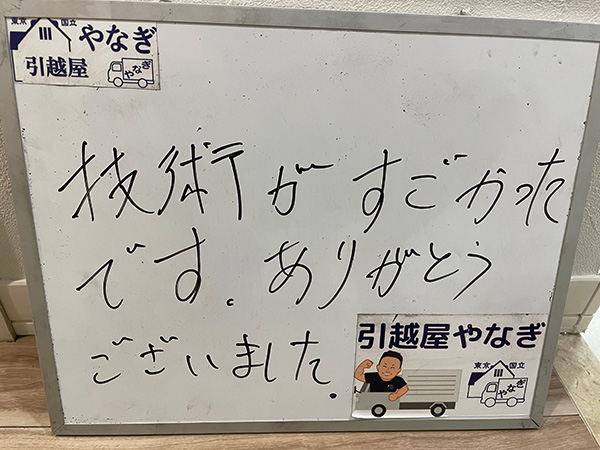 東京 国立 やなぎ
引越屋 やなぎ
技術がすごかった
です。ありがとう
ございました.
引越屋やなぎ
東京 国立
やなぎ